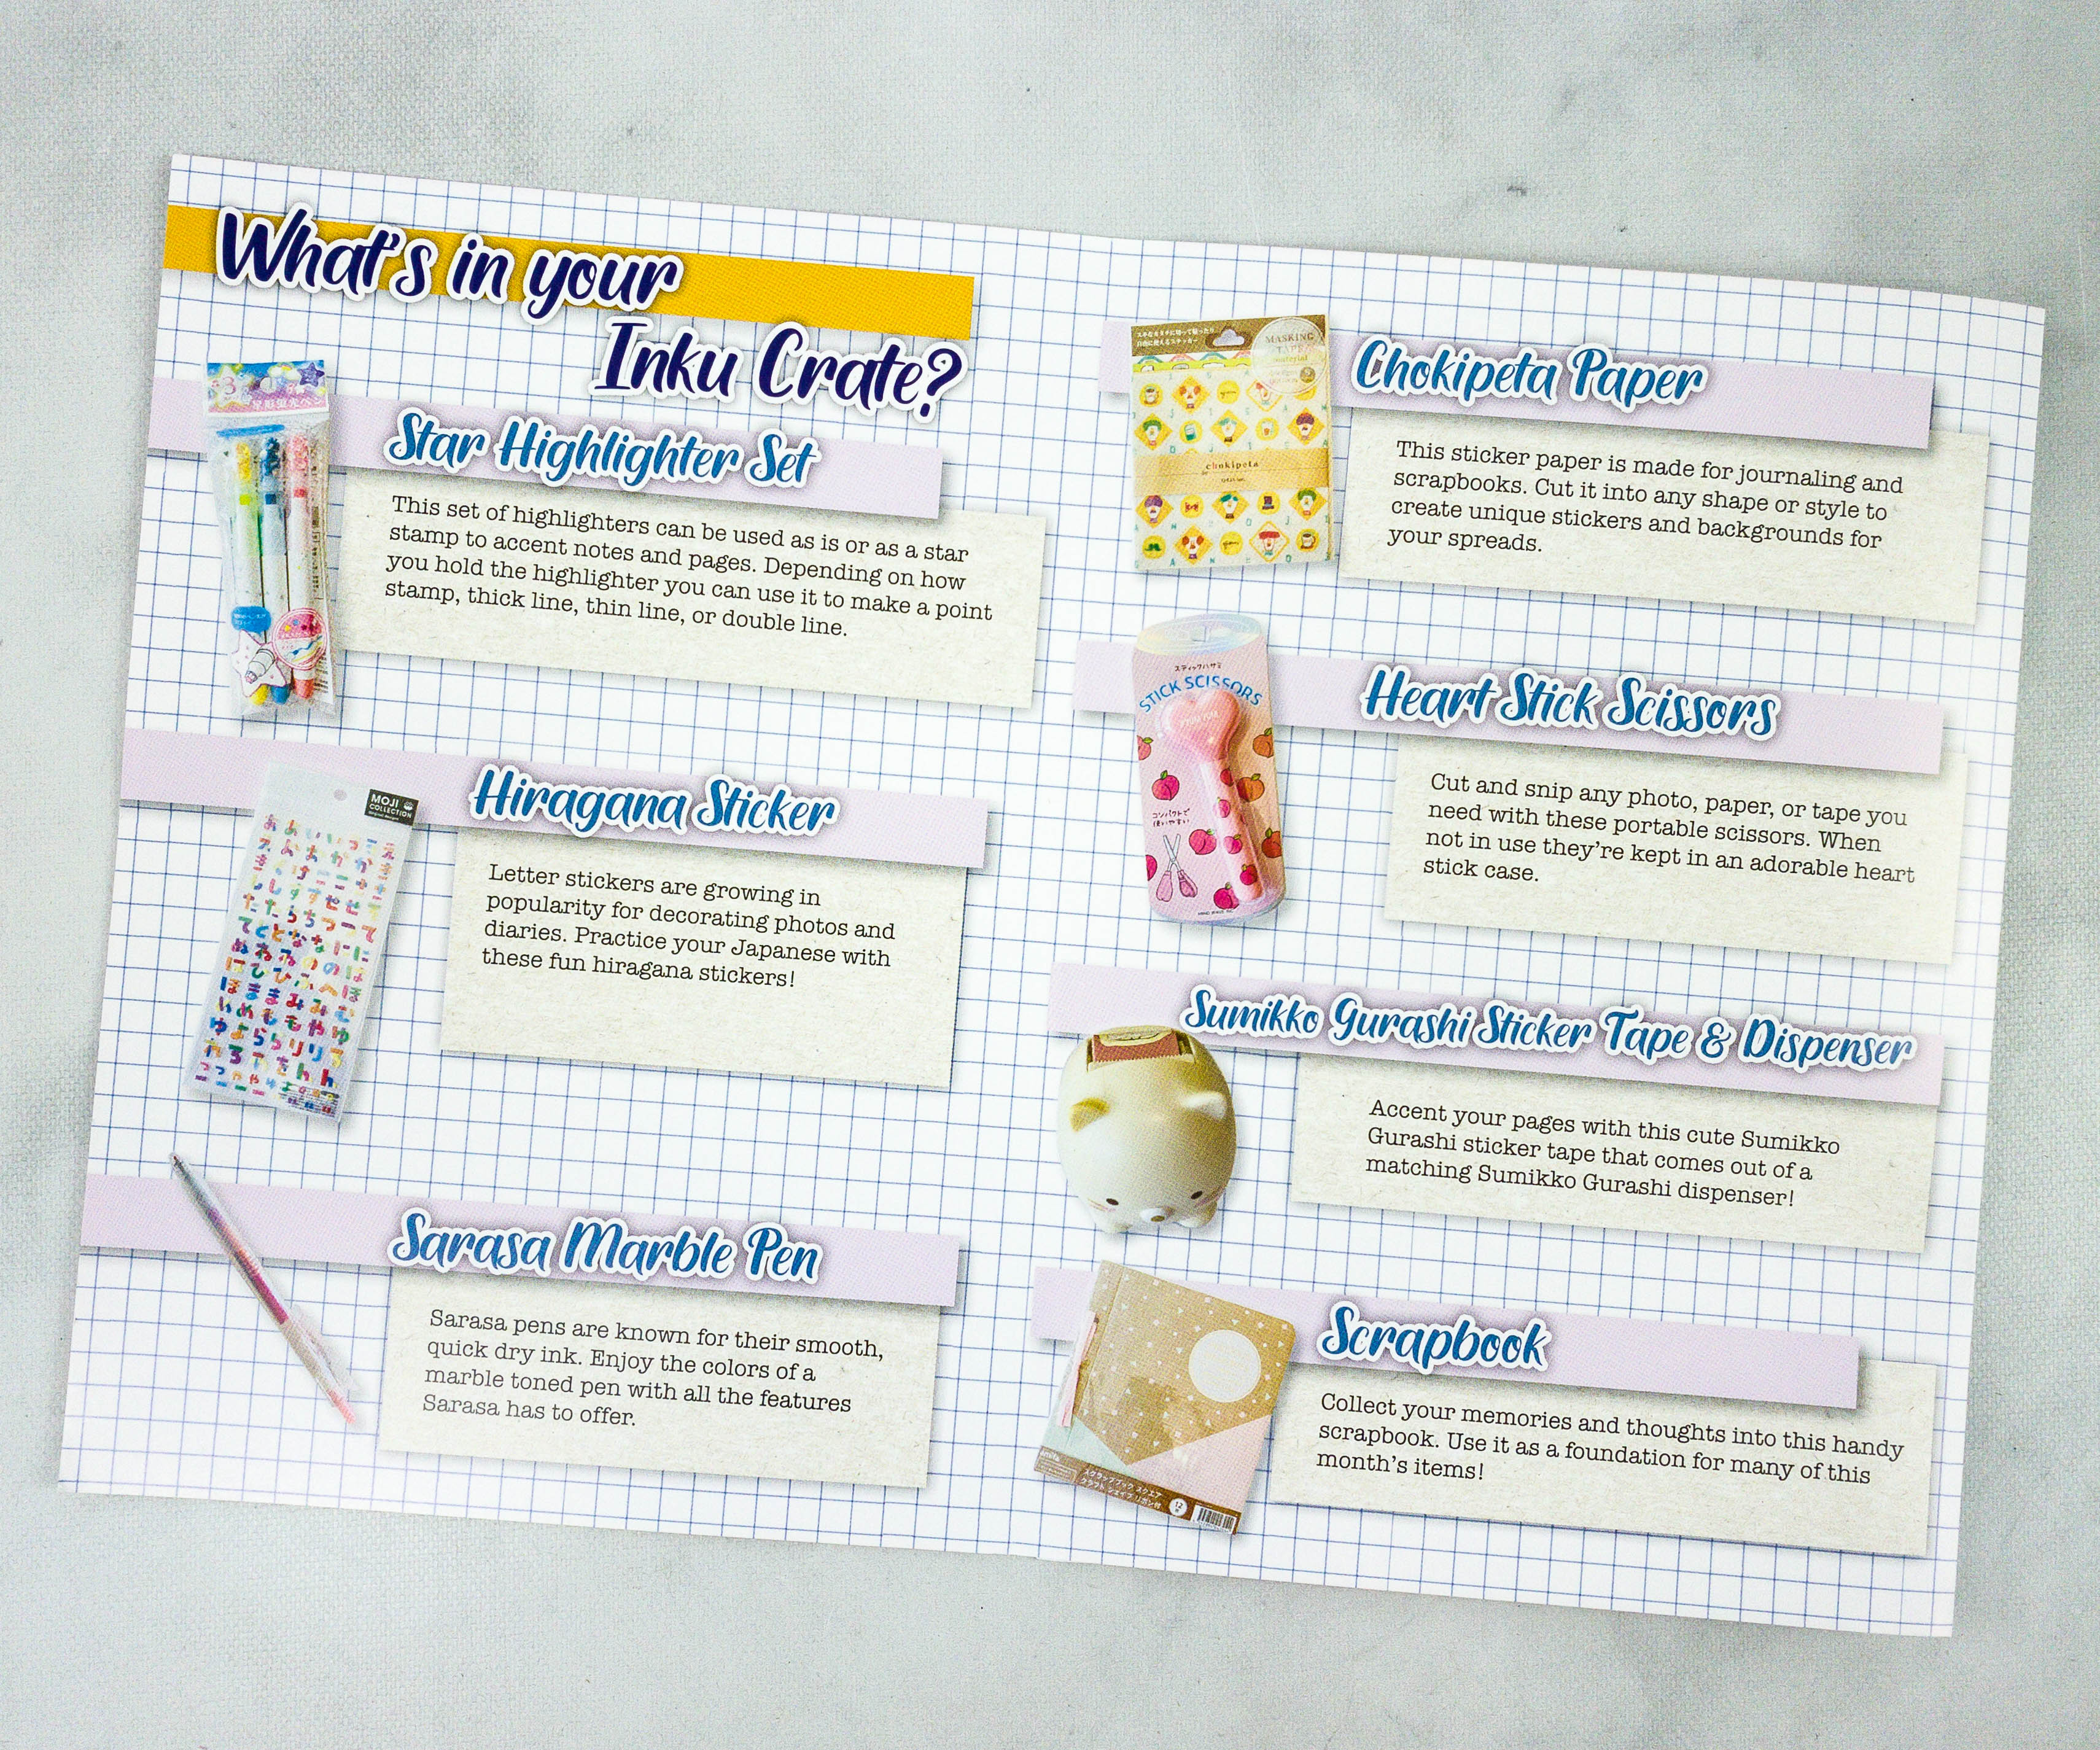 What's in your
Inku Crate?
Star Highlighter Set
This set of highlighters can be used as is or as a star
stamp to accent notes and pages. Depending on how
you hold the highlighter you can use it to make a point
stamp, thick line, thin line, or double line.
Hiragana Sticker
MOJI
COLLECTION
Letter stickers are growing in
popularity for decorating photos and
diaries. Practice your Japanese with
these fun hiragana stickers!
Sarasa Marble Pen
Sarasa pens are known for their smooth,
quick dry ink. Enjoy the colors of a
marble toned pen with all the features
Sarasa has to offer.
Chokipeta Paper
MASKING
TAPE
material
chokipeta
This sticker paper is made for journaling and
scrapbooks. Cut it into any shape or style to
create unique stickers and backgrounds for
your spreads.
Heart Stick Scissors
スティックハサミ
STICK SCISSORS
コンパクトで
使いやすい
Cut and snip any photo, paper, or tape you
need with these portable scissors. When
not in use they're kept in an adorable heart
stick case.
Sumikko Gurashi Sticker Tape & Dispenser
Accent your pages with this cute Sumikko
Gurashi sticker tape that comes out of a
matching Sumikko Gurashi dispenser!
Scrapbook
スクラップブック スクエア
12
Collect your memories and thoughts into this handy
scrapbook. Use it as a foundation for many of this
month's items!